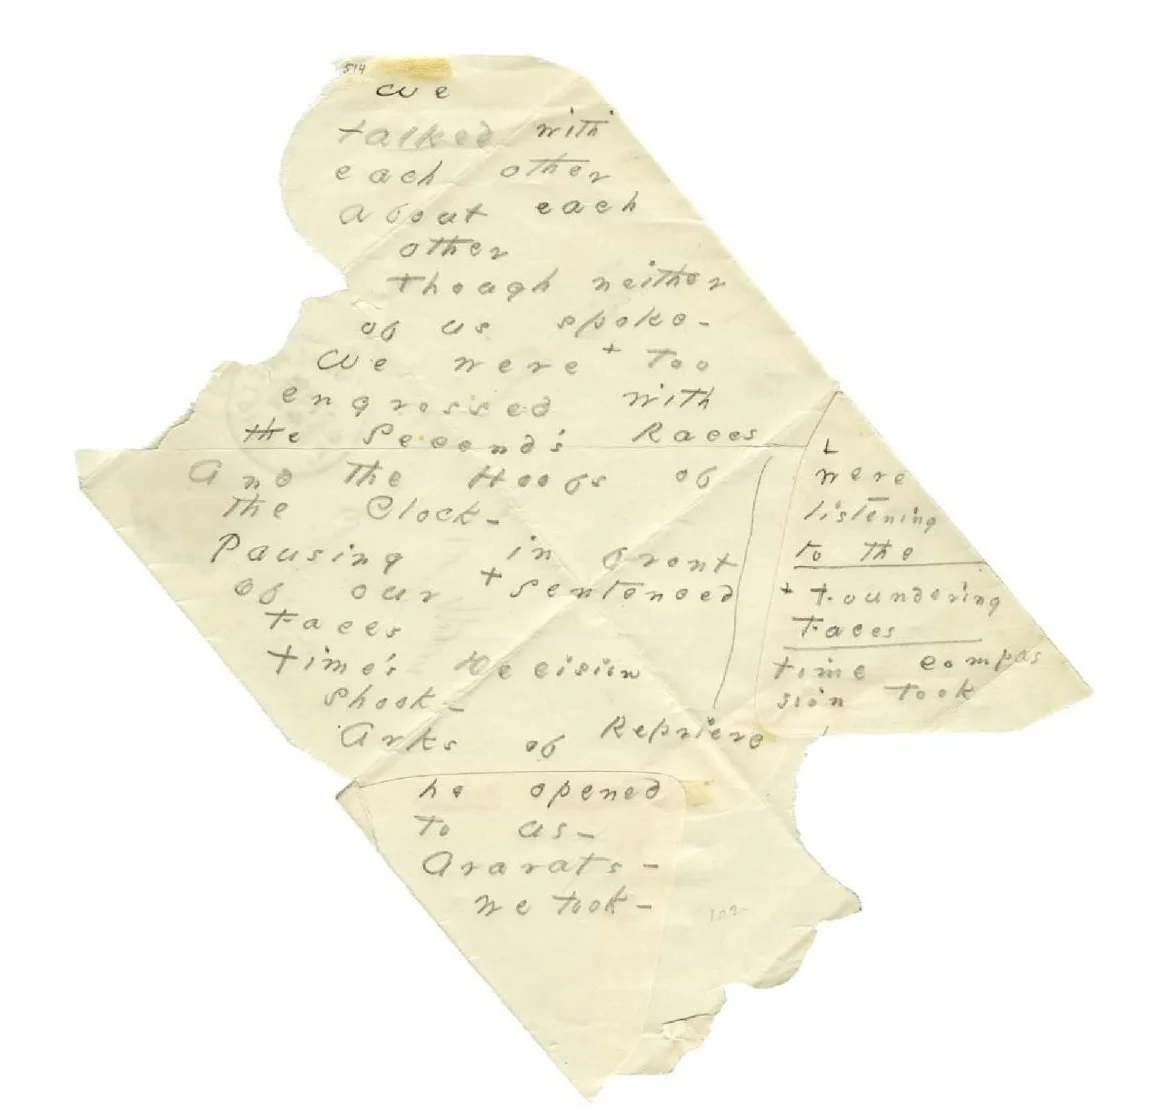 514
We
talked with
each other
about each
other
though neither
of us spoke –
We were + too
engrossed with
the Second's Races
And the Hoofs of
the Clock –
Pausing in front
of our + Sentenced
Faces
Time's Decision
shook –
Arks of Reprieve
he opened
to us –
Ararats –
we took –
were
listening
to the
+ foundering
Faces
time compas
sion took
102